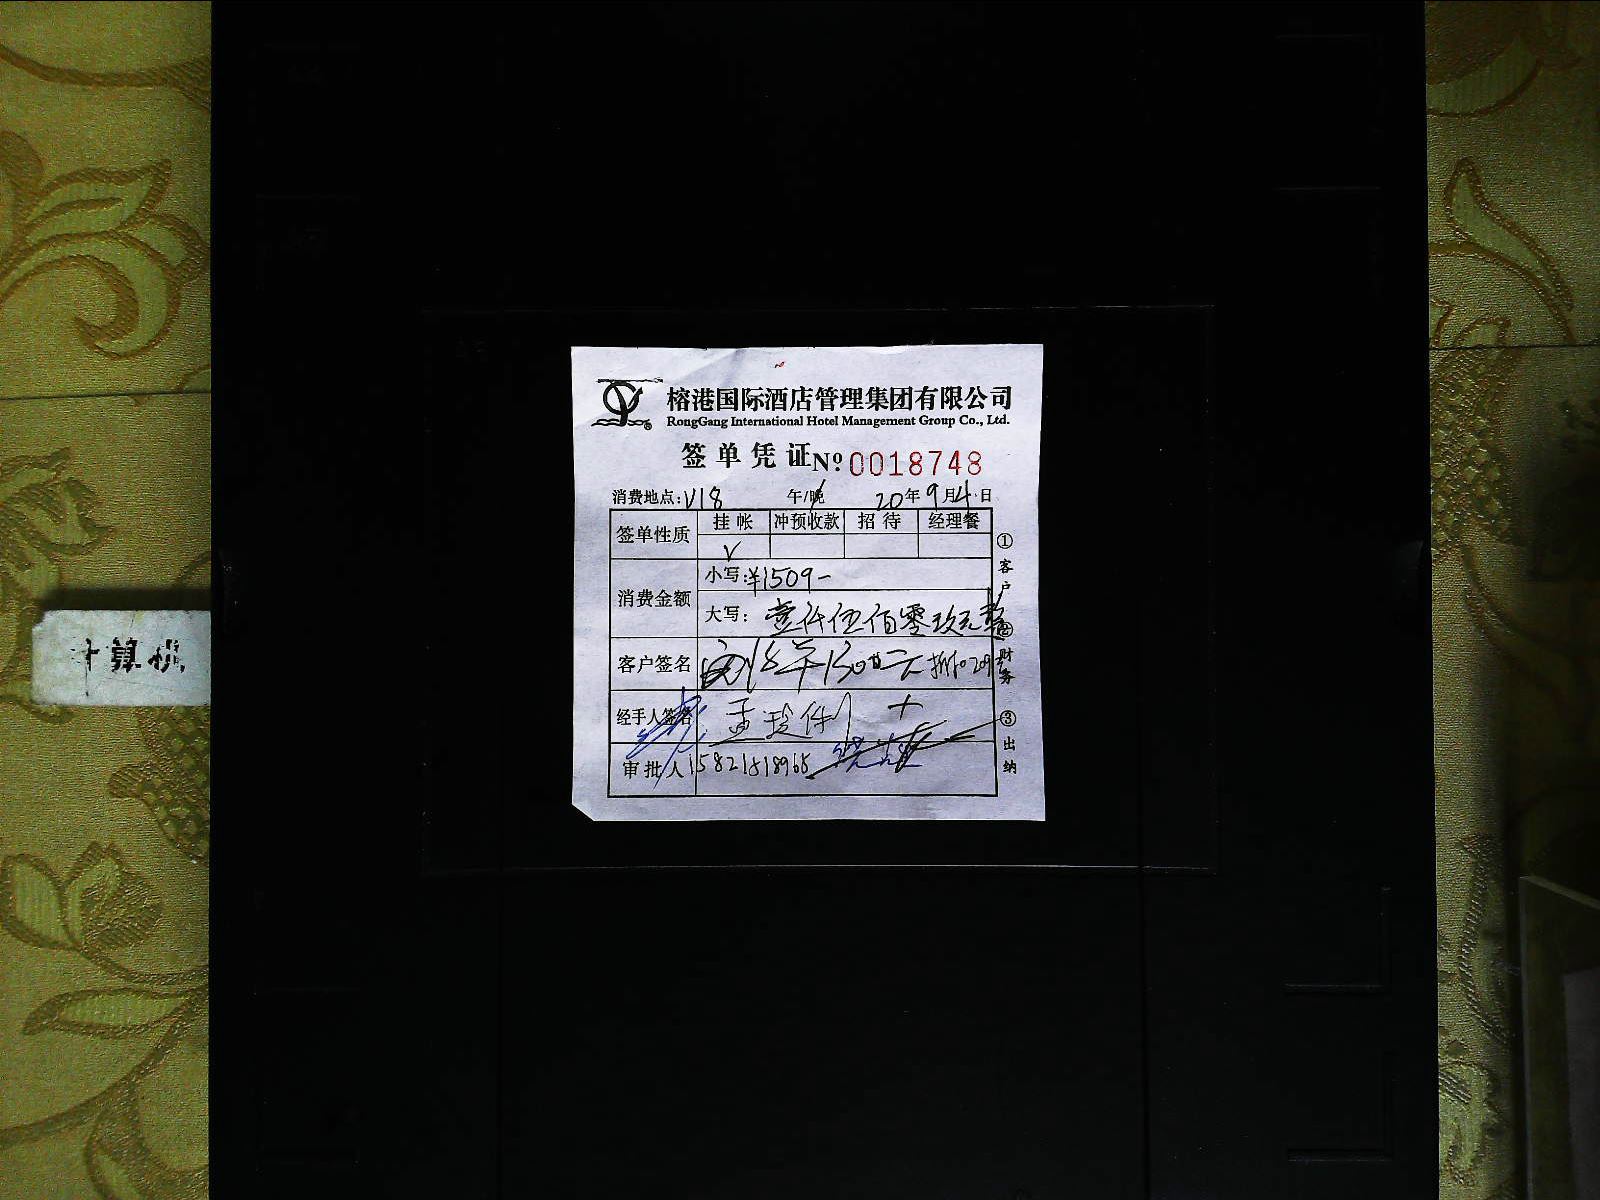 榕港国际酒店管理集团有限公司
RongGang International Hotel Management Group Co., Ltd.
签单凭证 Nº 0018748
消费地点: V18 午/晚 20年9月4日
签单性质 挂帐 冲预收款 招待 经理餐
V
消费金额 小写:¥1509-
大写: 壹仟伍佰零玖元整
客户签名
经手人签名
审批人 15821818968
①客户
②财务
③出纳
计算机